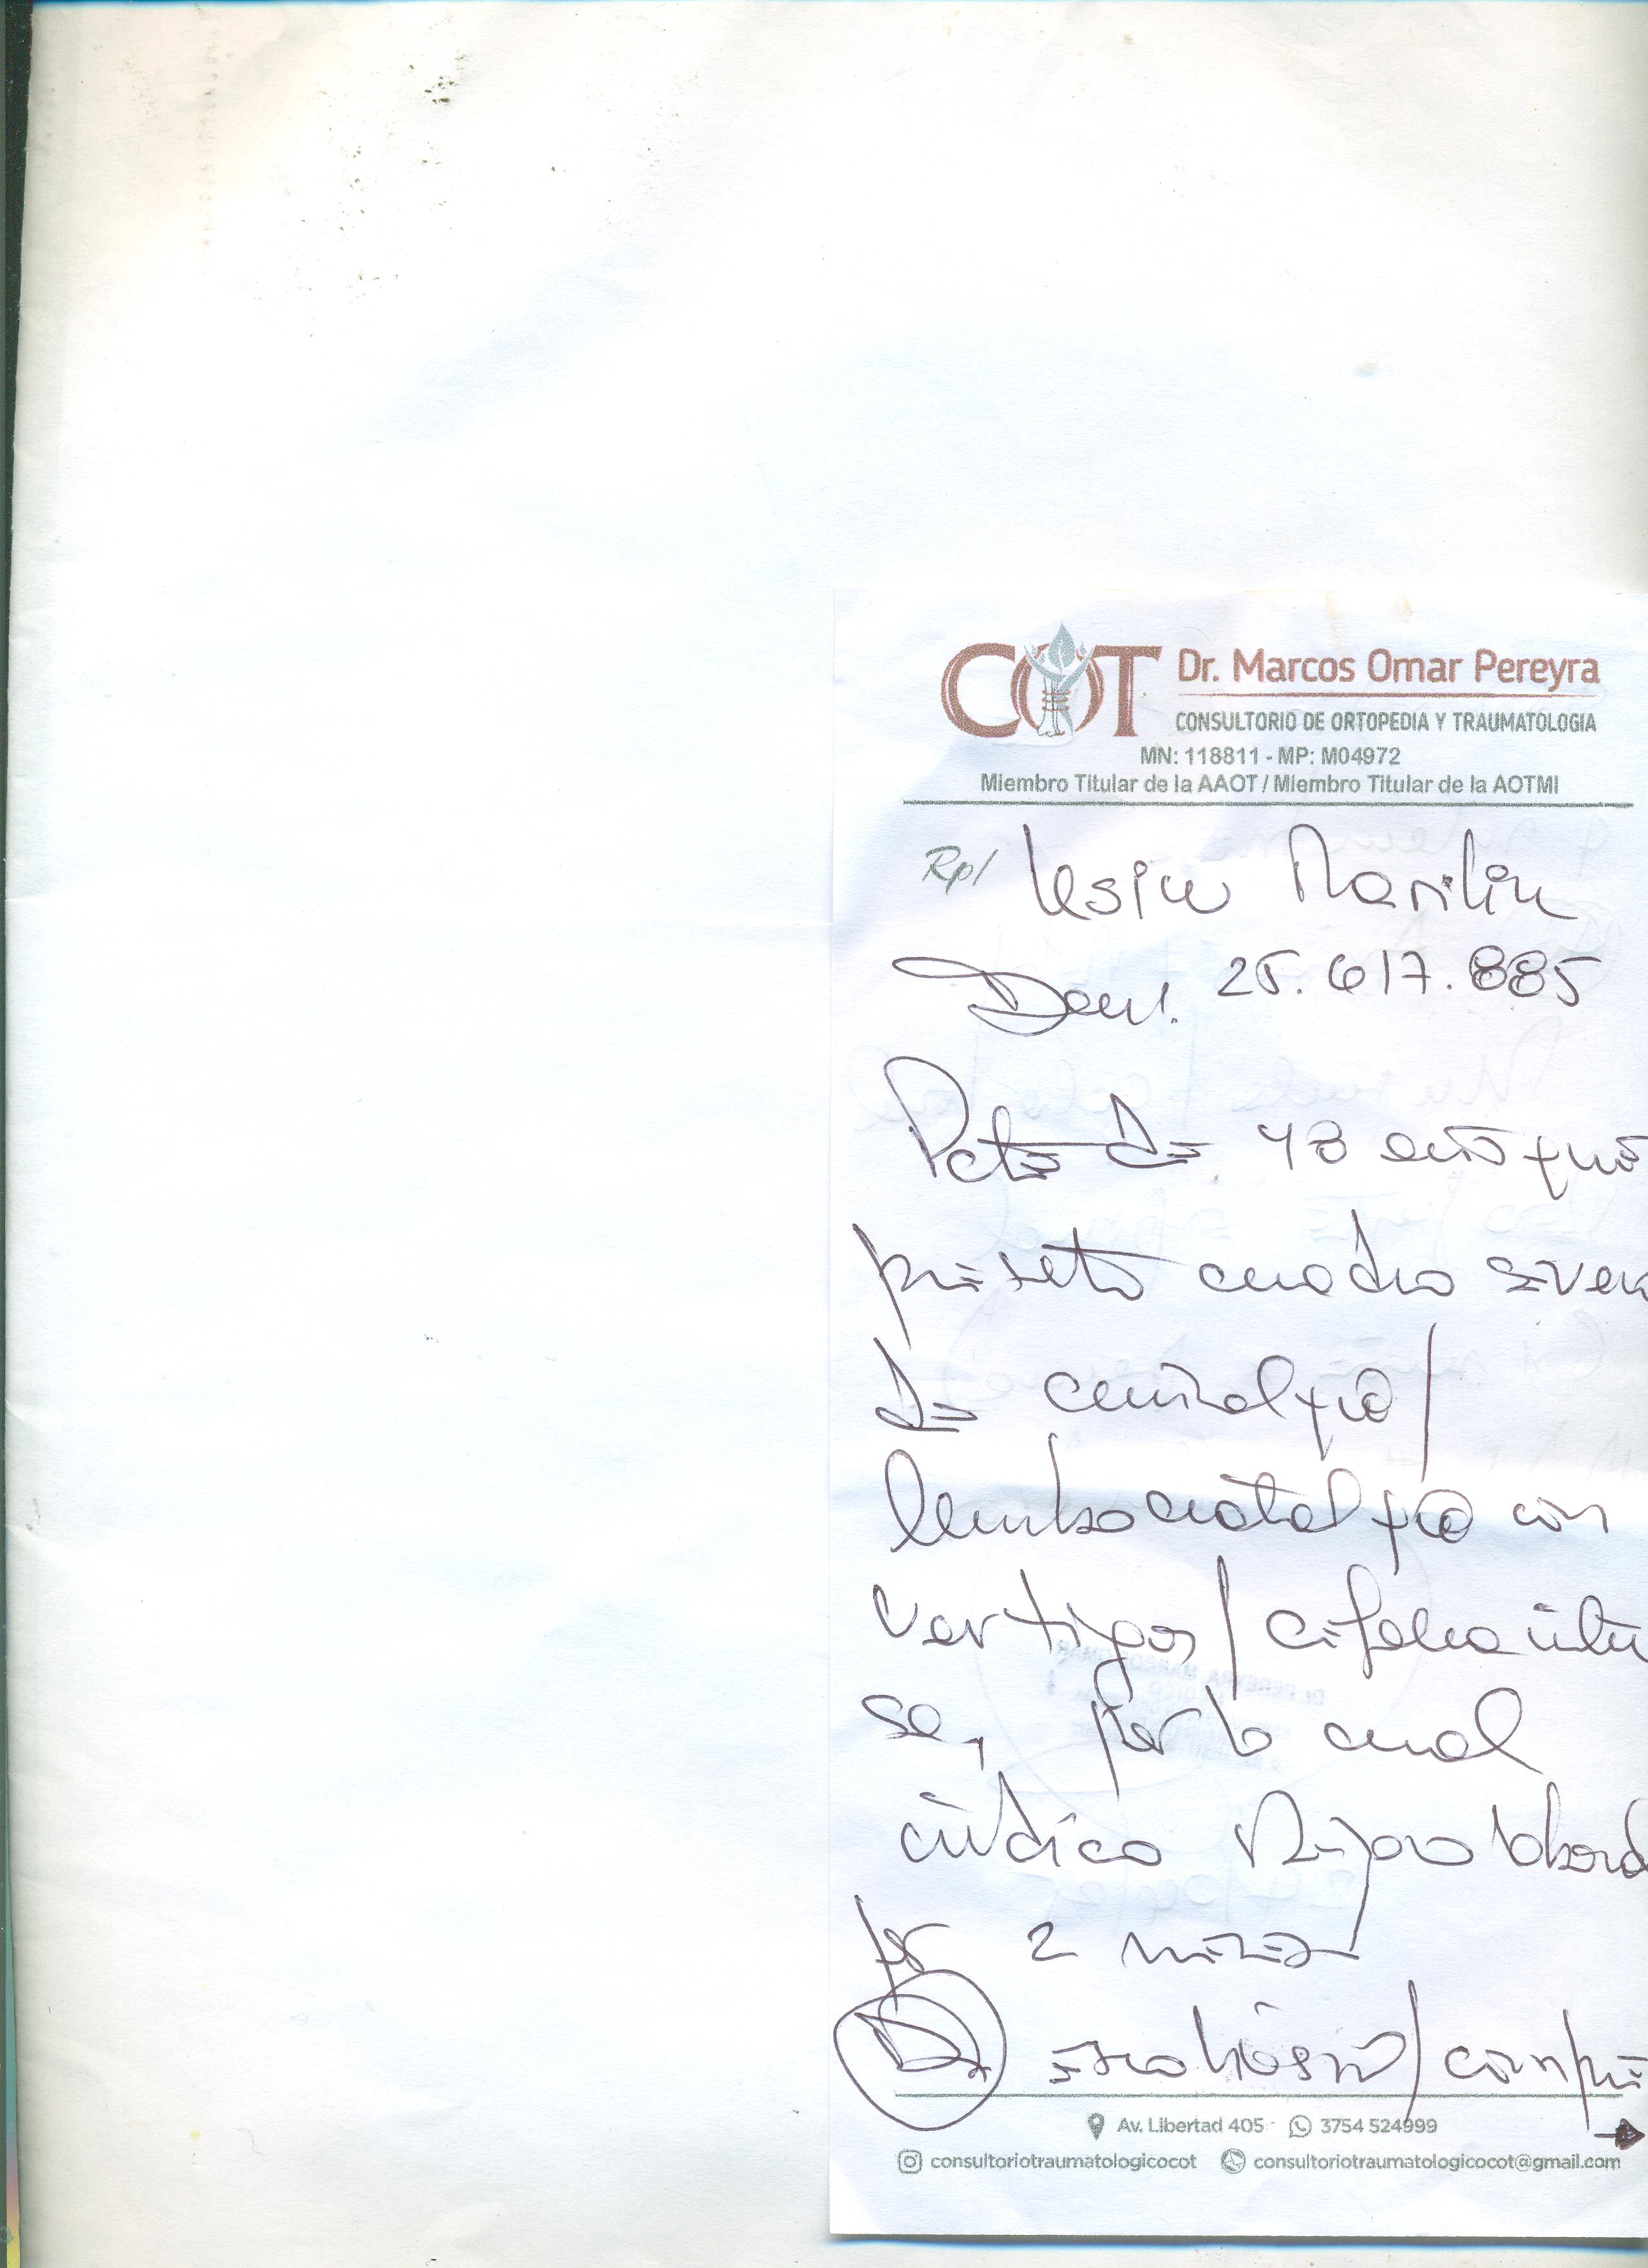 COT Dr. Marcos Omar Pereyra
CONSULTORIO DE ORTOPEDIA Y TRAUMATOLOGIA
MN: 118811 - MP: M04972
Miembro Titular de la AAOT / Miembro Titular de la AOTMI
Rp/ Marilin
25.617.885
Pcte de 48 años que
presenta cuadro sever
de cervicalgia /
lumbociatalgia con
vertigos / cefalea inten
sa, por lo cual
indico reposo laboral
por 2 meses
Dx escoliosis / compre
Av. Libertad 405 3754 524999
consultoriotraumatologicocot consultoriotraumatologicocot@gmail.com